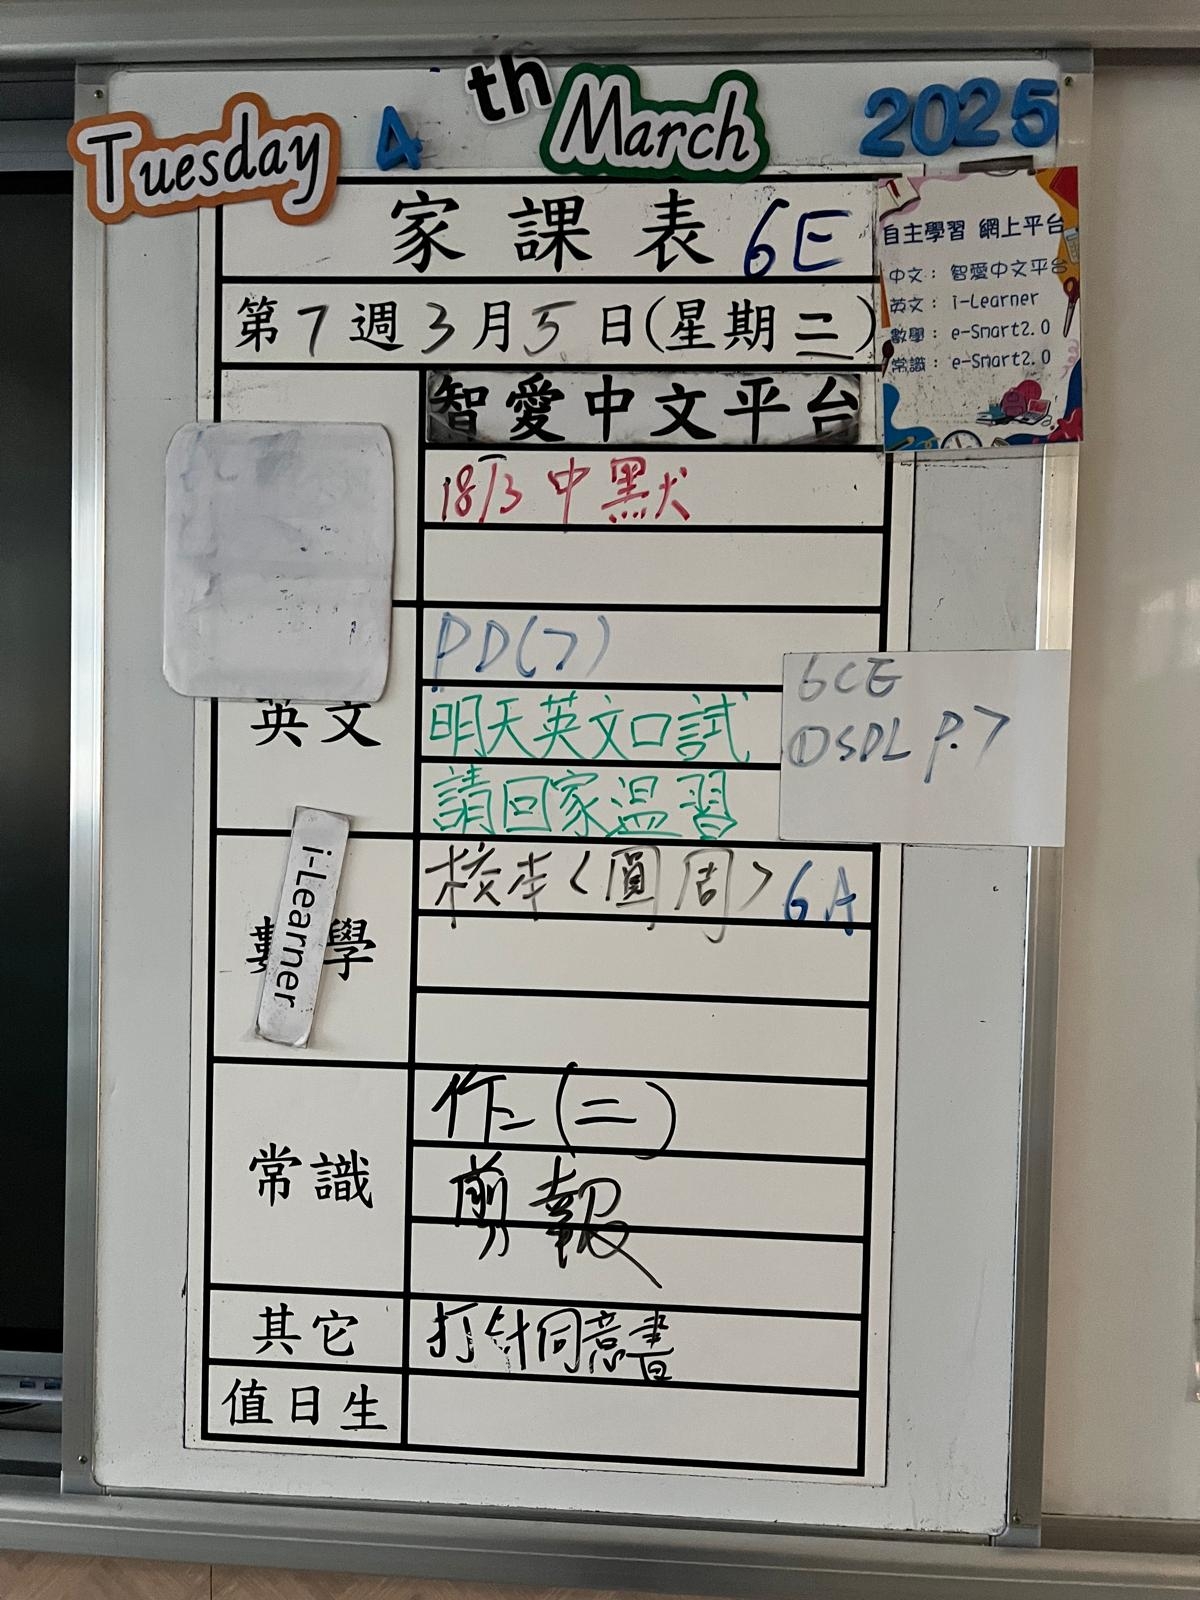 Tuesday 4th March 2025
家課表 6E
第7週3月5日(星期二)
自主學習 網上平台
中文： 智愛中文平台
英文： i-Learner
數學： e-Smart2.0
常識： e-Smart2.0
智愛中文平台
18/3 中默
英文
PD(7)
明天英文口試
請回家溫習
6CE
①SDL P.7
數學
i-Learner
校本〈圓周〉6A
常識
作(二)
剪報
其它
打針同意書
值日生